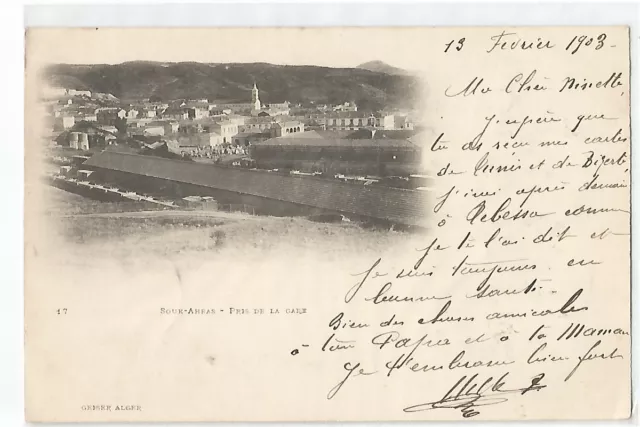 13 Fevrier 1903 -
Ma Chère Ninette,
j'espère que
tu as reçu mes cartes
de Tunis et de Bizerte,
j'irai après demain
à Tebessa comme
je te l'ai dit et
je suis toujours en
bonne santé.
Bien des choses amicales
à ton Papa et à ta Maman
Je t'embrasse bien fort
17 SOUK-AHRAS - PRIS DE LA GARE
GEISER ALGER